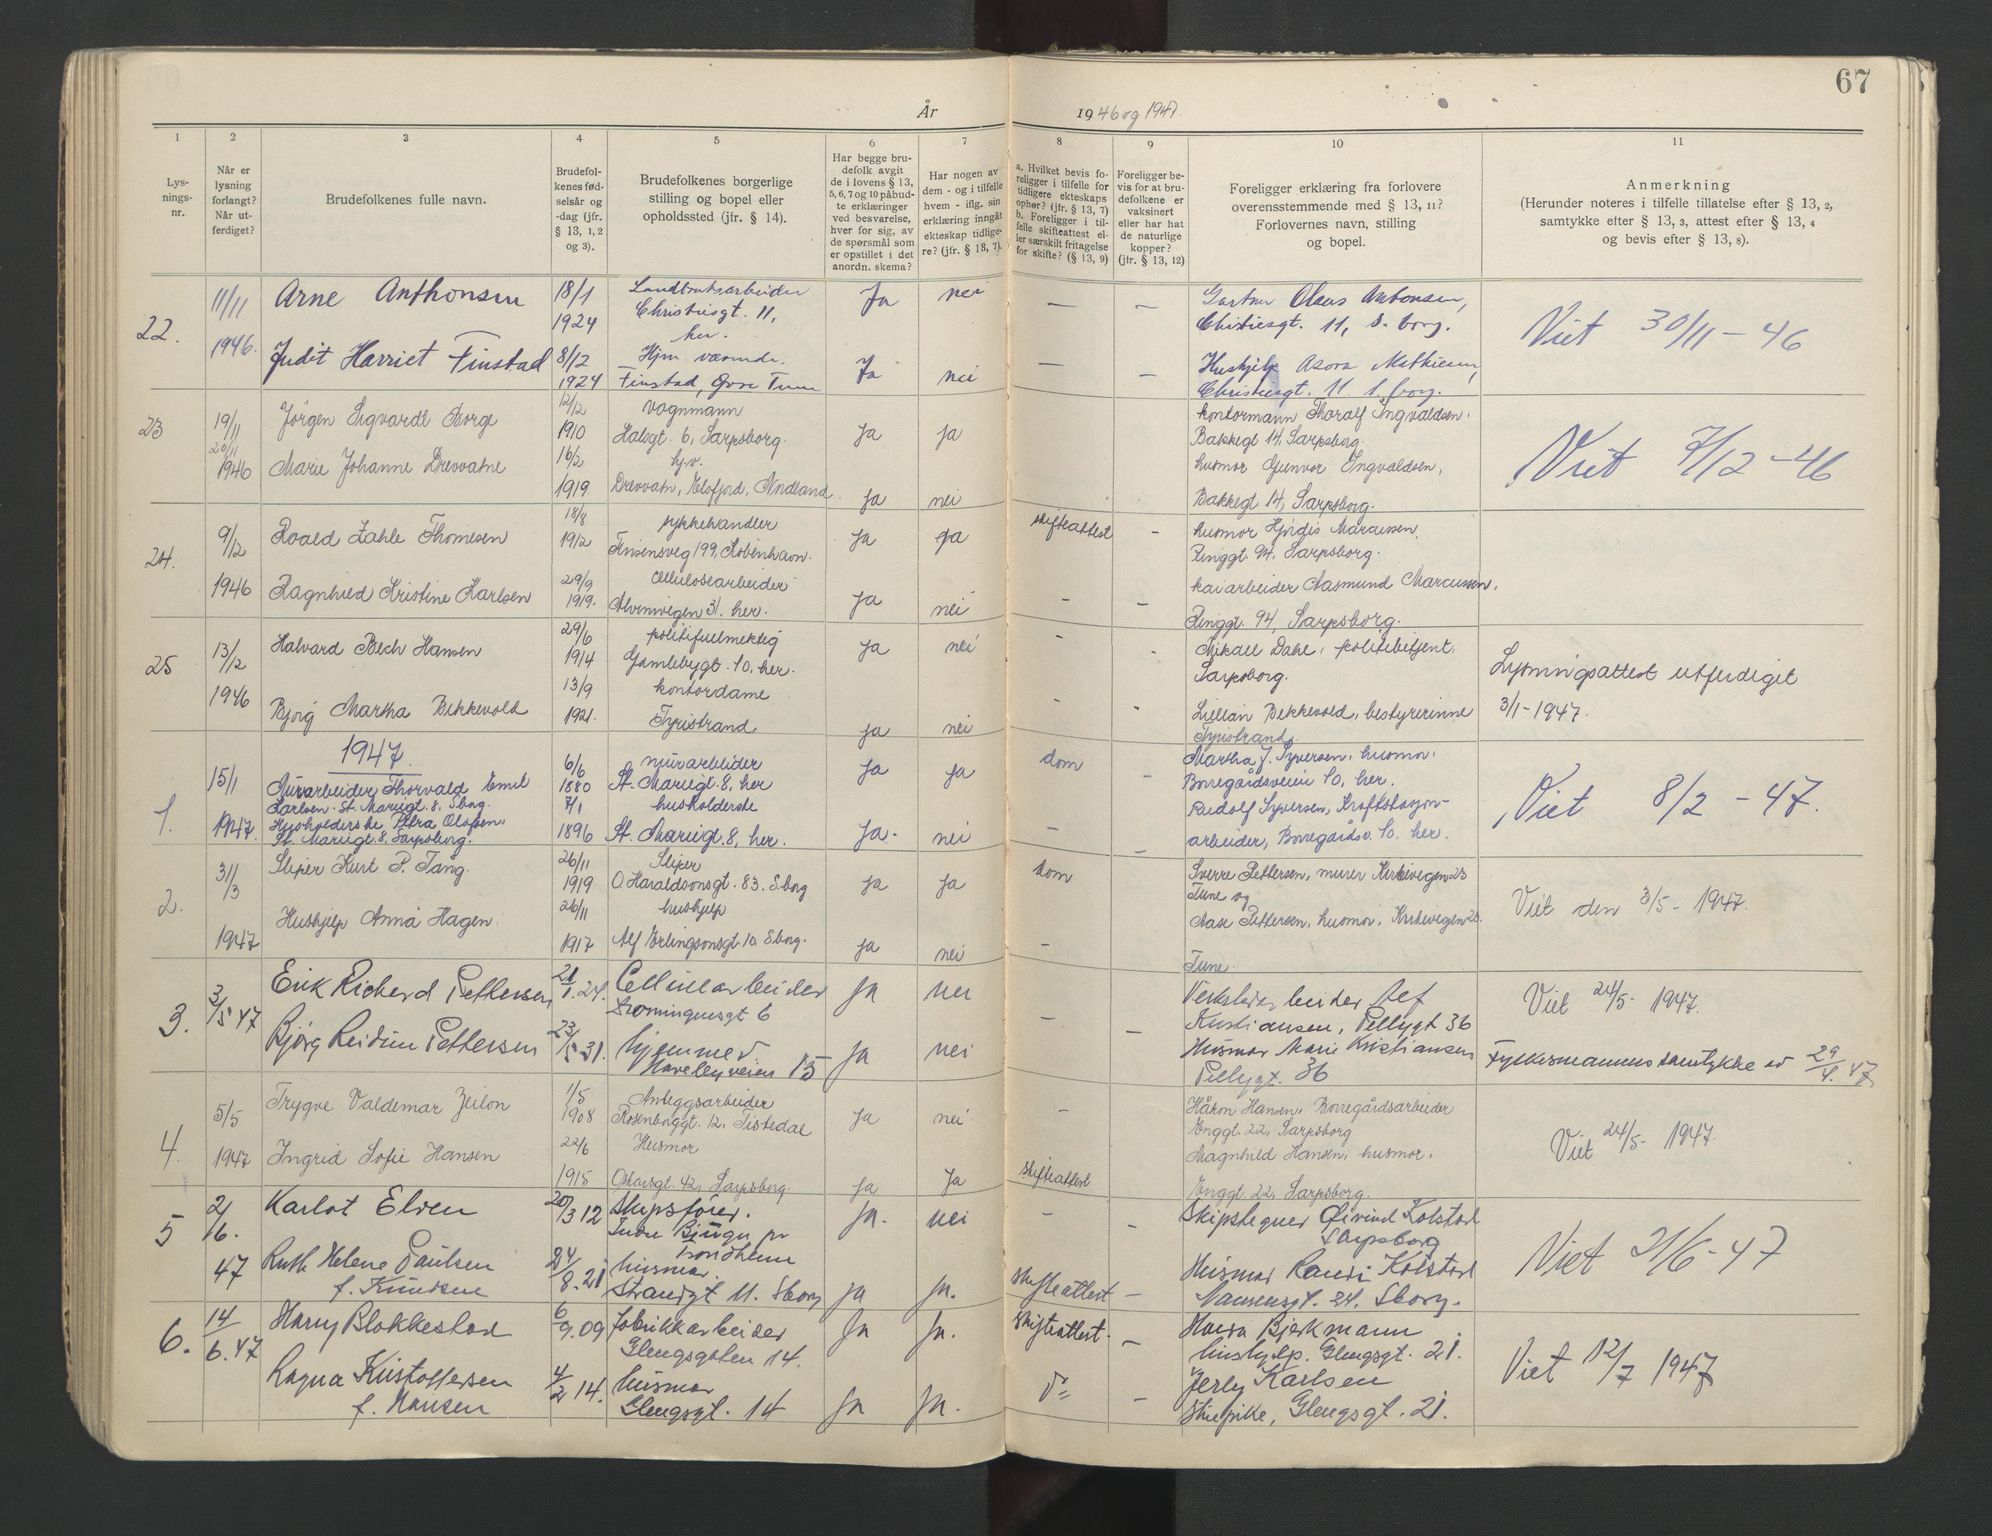 67
År 1946 og 1947.
1 2 3 4 5 6 7 8 9 10 11
Lysningsnr.
Når er lysning forlangt? Når utferdiget?
Brudefolkenes fulle navn.
Brudefolkenes fødselsår og -dag (jfr. § 13, 1, 2 og 3).
Brudefolkenes borgerlige stilling og bopel eller opholdssted (jfr. § 14).
Har begge brudefolk avgit de i lovens § 13, 5, 6, 7 og 10 påbudte erklæringer ved besvarelse, hver for sig, av de spørsmål som er opstillet i det anordn. skema?
Har nogen av dem - og i tilfelle hvem - iflg. sin erklæring inngått ekteskap tidligere? (jfr. § 13, 7).
a. Hvilket bevis foreligger i tilfelle for tidligere ekteskaps ophør? (jfr. § 13, 7) b. Foreligger i tilfelle skifteattest eller særskilt fritagelse for skifte? (§ 13, 9)
Foreligger bevis for at brudefolkene er vaksinert eller har hat de naturlige kopper? (jfr. § 13, 12)
Foreligger erklæring fra forlovere overensstemmende med § 13, 11? Forlovernes navn, stilling og bopel.
Anmerkning (Herunder noteres i tilfelle tillatelse efter § 13, 2, samtykke efter § 13, 3, attest efter § 13, 4 og bevis efter § 13, 8).
22. 11/11 Arne Anthonsen 18/1 1924 Landbruksarbeider Christiesgt. 11, her. Ja nei — — Gartner Olaus Antonsen, Christiesgt. 11, S.borg. Viet 30/11-46
1946. Judit Harriet Finstad 8/12 1924 Hjm. værende. Finstad, Øvre Tune Ja nei — — Hushjelp Asora Mathisen, Christiesgt. 11 S.borg.
23 19/11 Jørgen Sigvardt Borge 12/12 1910 Vognmann Halsgt. 6, Sarpsborg. Ja ja kontormann Thoralf Ingvaldsen. Bakkegt 14, Sarpsborg. Viet 7/12-46
20/11 1946 Marie Johanne Drevvatne 16/2 1919 hjv. Drevvatn, Elsfjord, Nordland. ja nei husmor Gunvor Ingvaldsen, Bakkegt 14, Sarpsborg.
24. 9/12 Roald Zahle Thomesen 18/8 1912 sykkehandler Finsensveg 199, København. ja ja skifteattest - husmor Hjørdis Marcussen, Ringgt. 94, Sarpsborg.
1946 Ragnhild Kristine Karlsen 29/9 1919. Cellulosearbeider Alvimvegen 31. her. ja nei - - kaiarbeider Aasmund Marcussen. Ringgt. 94, Sarpsborg.
25 13/12 Halvard Bech Hansen 29/6 1914 politifullmektig Gamlebygt. 10. her. ja nei - - Mikael Dahl, politibitjent. Sarpsborg. Lysningsattest utferdiget
1946 Bjørg Martha Bekkevold 13/9 1921. kontordame Tyristrand ja nei - - Lillian Bekkevold, bestyrerinne Tyristrand. 3/1-1947.
1947.
1. 15/1 Murarbeider Thorvald Emil Karlsen. St. Mariegt. 8. S.borg. 6/6 1880 murarbeider St. Mariegt. 8, her ja ja dom - Martha J. Syversen, husmor. Borregårdsveien 10, her. Viet 8/2-47.
1947. Husholderske Petra Olofsen. St. Mariegt. 8, Sarpsborg. 7/1 1896 husholderske St. Mariegt. 8, her. Ja- nei - - Rudolf Syversen, Kraftstasjonarbeider, Borregårdsv. 10. her.
2. 31/3 Sliper Kurt P. Tång. 26/11 1919 Sliper O Haraldsonsgt. 83. S.borg ja ja dom Sverre Pettersen, murer Kirkevegen 23 Tune og Viet den 3/5- 1947.
1947 Hushjelp Anna Hagen. 26/11 1917 hushjelp Alf Erlingsonsgt 10 S.borg. ja nei - Aase Pettersen, husmor, Kirkevegen 23. Tune.
3. 3/5 47 Erik Richard Pettersen 21/1.24. Cellulosearbeider Dronningensgt 6 Ja nei Verkstedarbeider Alf Kristiansen, Pellygt 36 Viet 24/5- 1947.
Bjørg Reidun Pettersen 23/5 31. hjemmev. Haralbyveien 15 Ja nei - - Husmor Marie Kristiansen Pellygt. 36 Fylkesmannens samtykke av 29/4. 47
4. 5/5 Trygve Valdemar Zeilon 1/5 1908 Anleggsarbeider Rosenborggt. 12, Tistedal ja nei - Håkon Hansen, Borregårdsarbeider Enggt. 22, Sarpsborg Viet 24/5- 1947.
1947 Ingrid Sofie Hansen 22/6 1915 Husmor Oskarsgt. 42, Sarpsborg. ja ja skifteattest Magnhild Hansen, husmor. Enggt. 22, Sarpsborg.
5 2/6. Karlot Elven 20/3 12 Skipsfører. Indre Bjugn pr Trondheim ja. nei - - Skipstegner Øivind Kolstad Sarpsborg Viet 21/6-47
47 Ruth Helene Paulsen f. Knudsen 24/8. 21 husmor. Strandgt 11. Sborg ja Ja. skifteattest - Husmor Randi Kolstad Nansensgt. 24. Sborg.
6. 14/6. 47 Harry Blokkestad 6/9.09 fabrikkarbeider Glengsgaten 14. Ja Ja. skifteattest. - Hulda Bjerkmann hushjelp. Glengsgt. 21. Viet 12/7 1947
Ragna Kristoffersen f. Hansen 4/2 14. husmor Glengsgt. 14 Ja Ja. - Jerly Karlsen Glengsgt. 21.